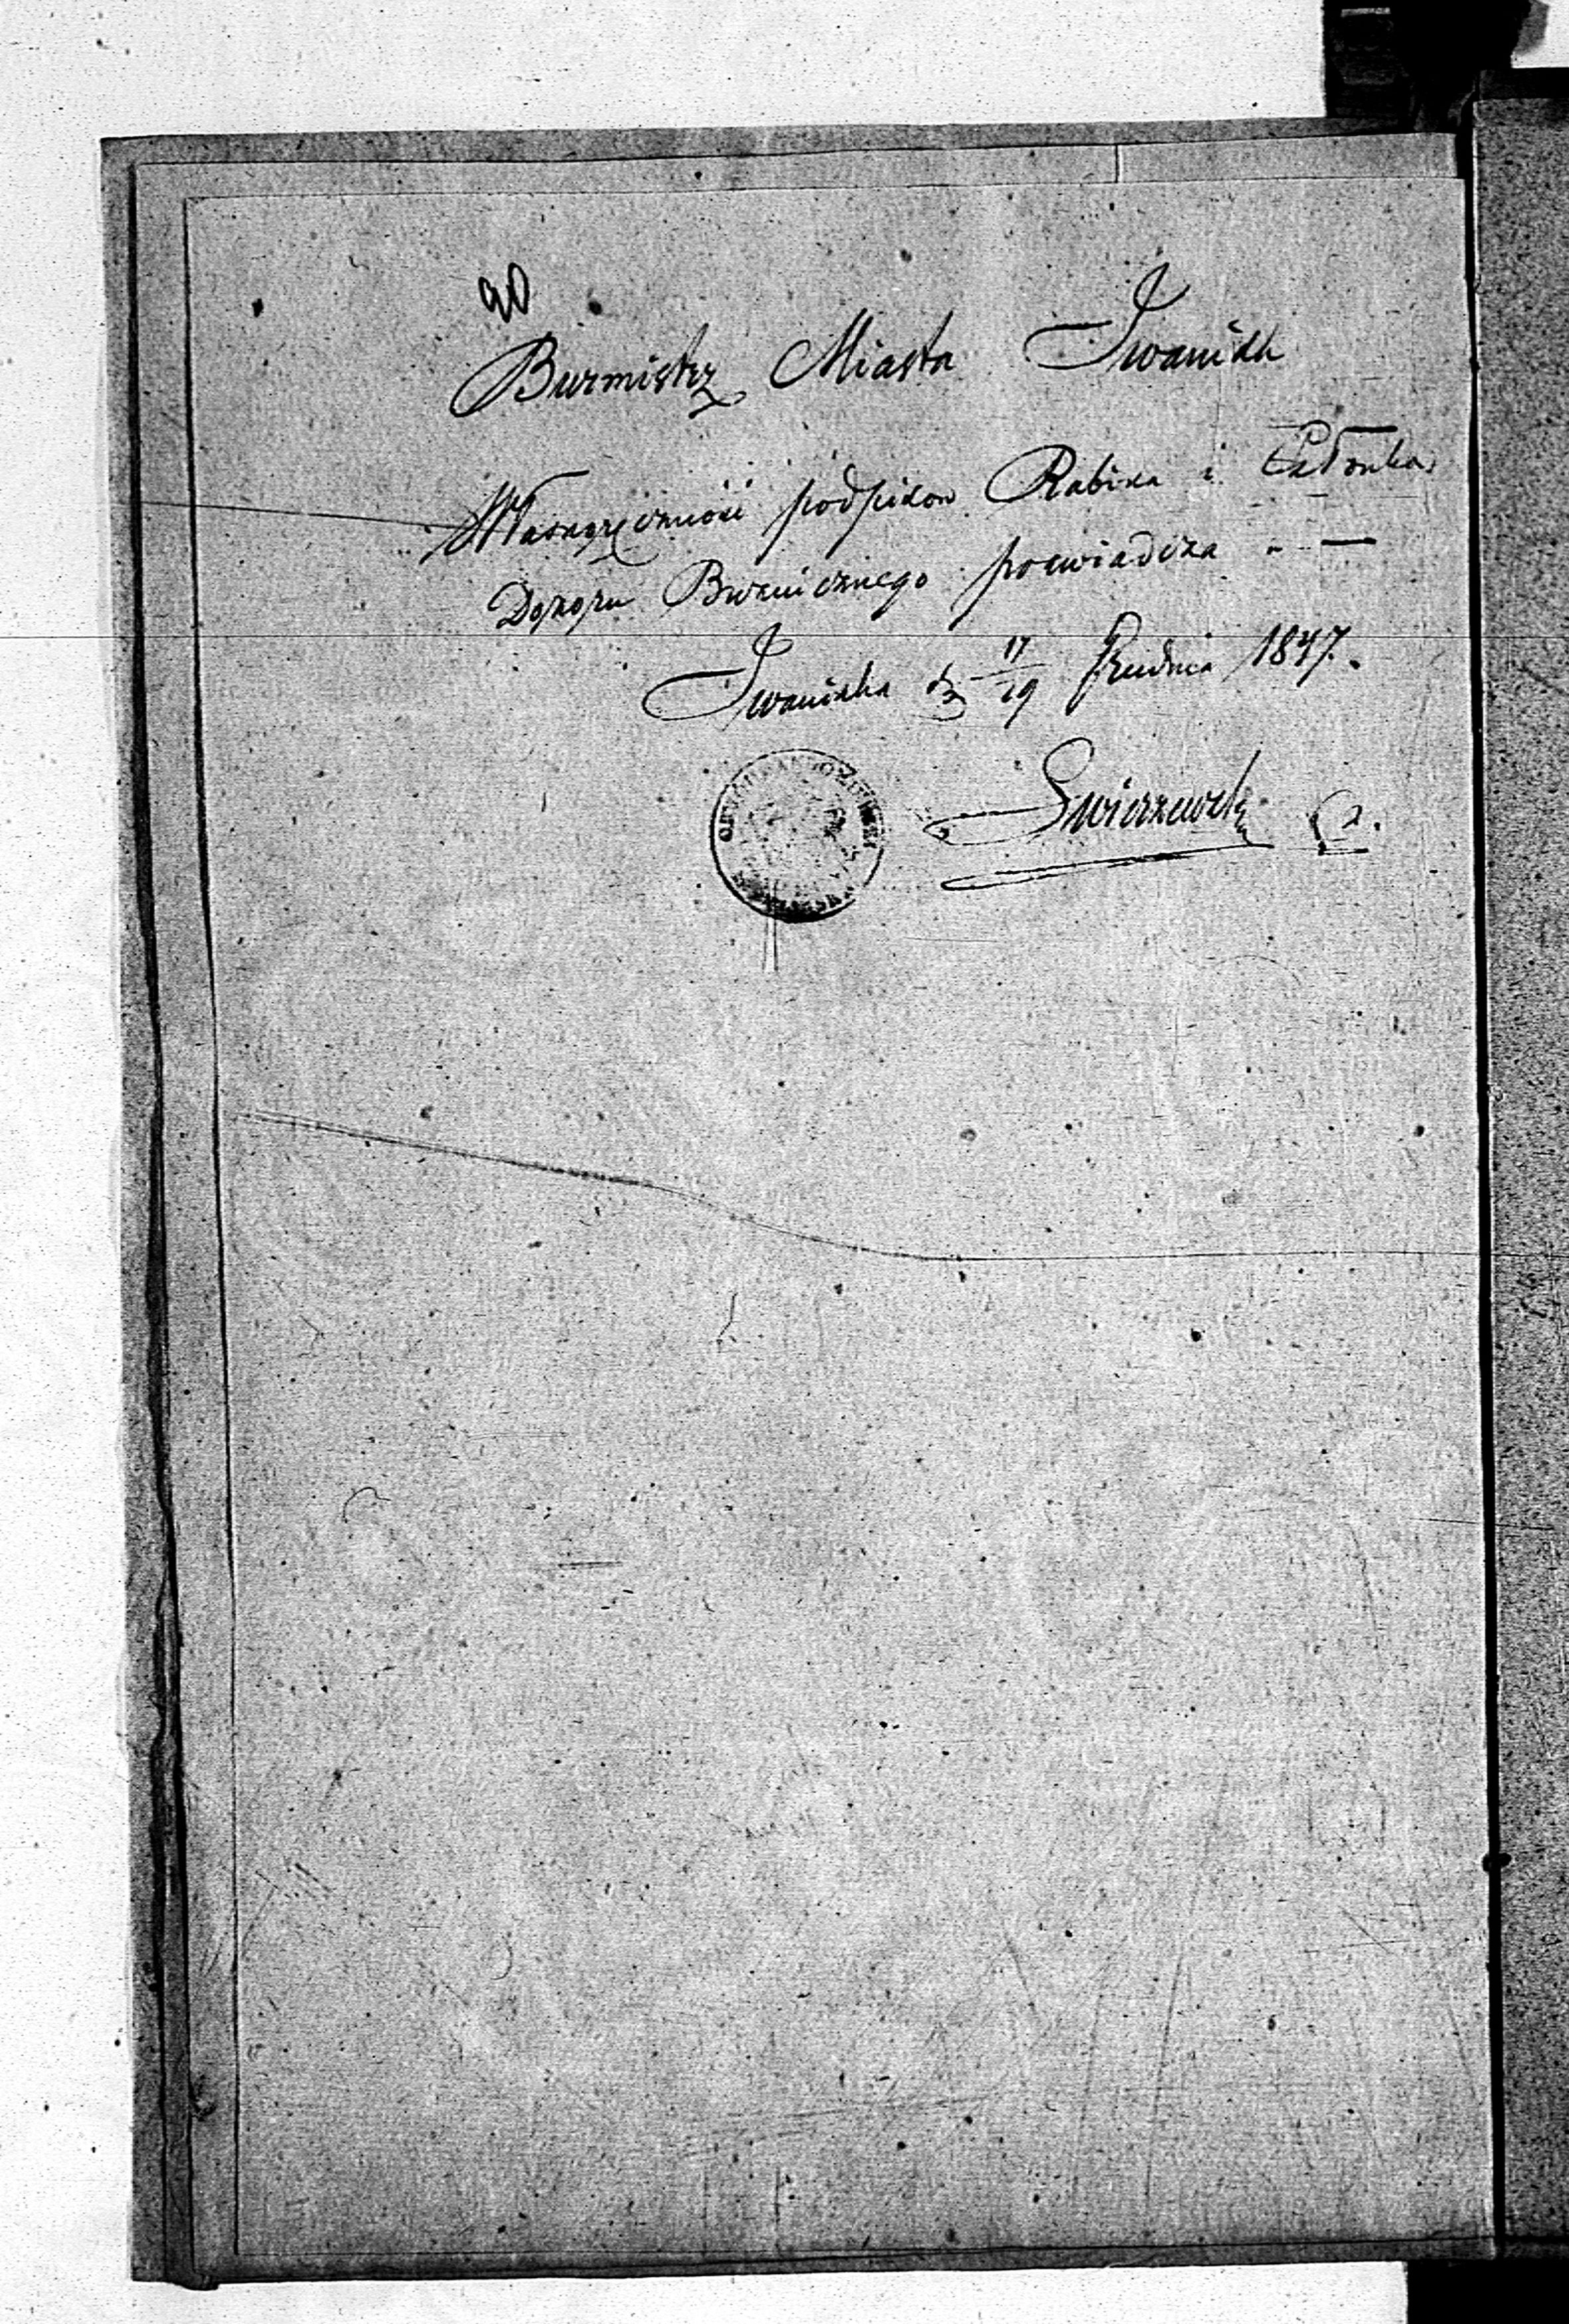 90
Burmistrz Miasta Iwanisk
Własnoręczność podpisow Rabina i Członka
Dozoru Bożniczego poswiadcza
Iwaniska d 17/29 Grudnia 1847.
Swierzewski